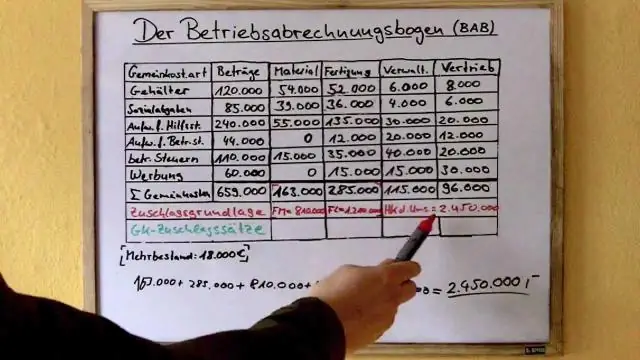 Der Betriebsabrechnungsbogen (BAB)
Gemeinkost.art Beträge Material Fertigung Verwalt. Vertrieb
Gehälter 120.000 54.000 52.000 6.000 8.000
Sozialabgaben 85.000 39.000 36.000 4.000 6.000
Aufw. f. Hilfsst. 240.000 55.000 135.000 30.000 20.000
Aufw. f. Betr. st. 44.000 0 12.000 20.000 12.000
betr. Steuern 110.000 15.000 35.000 40.000 20.000
Werbung 60.000 0 15.000 15.000 30.000
Σ Gemeinkosten 659.000 163.000 285.000 115.000 96.000
Zuschlagsgrundlage FM=810.000 FL=1.210.000 HK d. Ums.=2.450.000
GK-Zuschlagssätze
[Mehrbestand: 18.000€]
163.000 + 285.000 + 810.000 + = 2.450.000